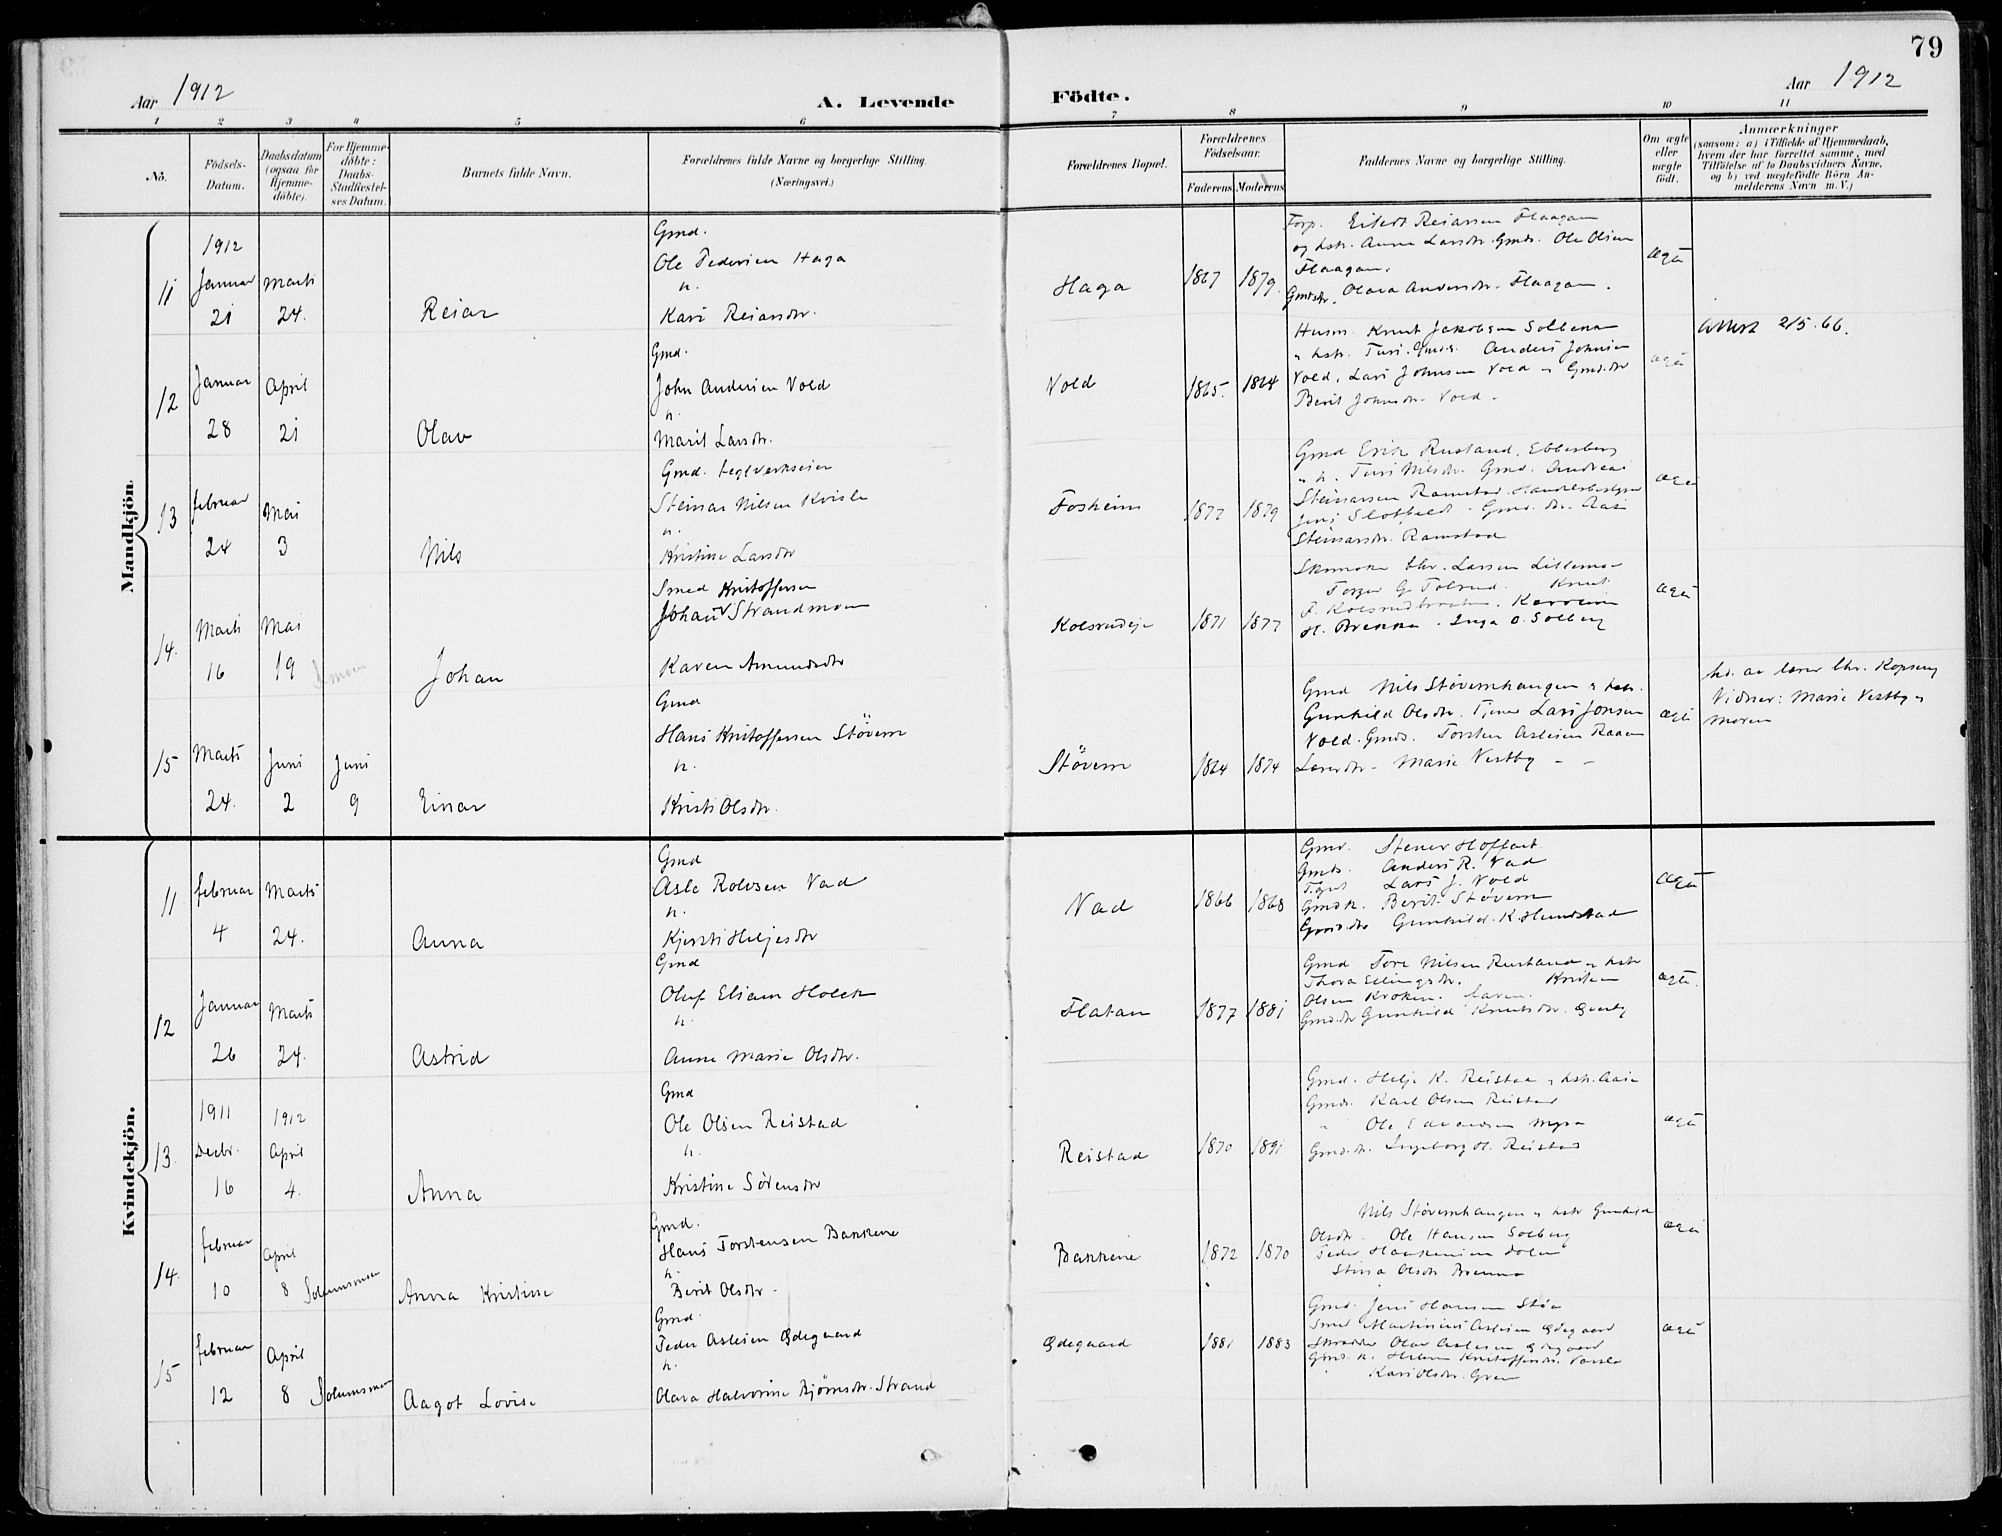 79
Aar 1912
A. Levende Födte.
Aar 1912
1 2 3 4 5 6 7 8 9 10 11
No.
Födsels-
Datum.
Daabsdatum
(ogsaa for
Hjemme-
döbte).
For Hjemme-
döbte:
Daabs-
Stadfæstel-
ses Datum.
Barnets fulde Navn.
Forældrenes fulde Navne og borgerlige Stilling.
(Næringsvei.)
Forældrenes Bopæl.
Forældrenes
Födselsaar.
Faderens
Moderens
Faddernes Navne og borgerlige Stilling.
Om ægte
eller
uægte
födt.
Anmærkninger
(saasom: a) i Tilfælde af Hjemmedaab,
hvem der har forrettet samme, med
Tilföielse af to Daabsvidners Navne.
og b) ved uægtefödte Börn An-
melderens Navn m. V.)
Mandkjön.
11
1912
Januar
21
Marts
24.
Reiar
Gmd.
Ole Pedersen Haga
h.
Kari Reiarsdtr.
Haga
1867
1879.
Forp. Eiledt Reiarsen Flaagan
og hstr. Anne Larsdtr. Gmds. Ole Olsen
Flaagan.
Gmdsdtr. Olava Andersdtr. Flaagan.
ægte
12
Januar
28
April
21
Olav
Gmd.
John Andersen Vold
h.
Marit Larsdtr.
Vold
1865.
1864
Husm. Knut Jakobsen Solbakken
" hstr. Turi. Gmds. Anders Johnsen
Vold, Lars Johnsen Vold " Gmd.dtr
Berit Johnsdtr. Vold.
ægte
Attest 2/5.66.
13
februar
24
Mai
3
Nils
Gmd. teglverkseier
Steinar Nilsen Kvisle
h.
Kristine Larsdtr
Fosheim
1872
1879
Gmd Erik Rustand, Ebbesberg
" h. Turi Nilsdtr. Gmd. Andreas
Steinarsen Ramstad. Handelsbestyrer
Jens Slotfeldt. Gmd. dtr. Aase
Steinarsdtr. Ramstad
ægte
14.
Marts
16
Mai
19
Johan
Smed Kristoffersen
Johan Strandmoen
Karen Amundsdtr
Kolsrudeje
1871
1877
Skomaker Chr. Larsen Lillemo
Torger G Tolsrud. Knut
Karoline
H. Brekke. Inga O. Solberg
ægte
15
Marts
24.
Juni
2
Juni
9
Einar
Gmd
Hans Kristoffersen Støvern
h.
Kristi Olsdtr.
Støvern
1864
1874
Gmd Nils Støvernhaugen " hstr.
Gunhild Olsdtr. Tjener Lars Jonsen
Vold. Gmds. Torsten Aslesen Raaen
Lærerdtr. Marie Vestby
ægte
hd. av lærer Chr. Kopseng
Vidner: Marie Vestby "
moren
Kvindekjön.
11
februar
4
Marts
24.
Anna
Gmd
Asle Rolvsen Vad
h.
Kjersti Heljesdtr
Vad
1866
1868
Gmd. Stener Hoffart
Gmds. Anders R. Vad
Lars J. Vold
Gmd.k. Berit Støvern
Gmd.dtr Gunhild K. Hundstad
ægte
12
Januar
26
Marts
24.
Astrid
Gmd
Oluf Eliasen Holck
h.
Anne Marie Olsdtr.
Flatan
1877
1881
Gmd Tore Nilsen Rustand " hstr
Thora Ellingsdtr. Kristen
Olsen Kroken.
Gmd.dtr Gunhild Knutsdtr.
ægte.
13.
1911
Decbr.
16
1912
April
4.
Anna
Gmd
Ole Olsen Reistad
h.
Kristine Sørensdtr
Reistad
1870
1891
Gmd. Helje K. Reistad " hstr. Aase
Gmds. Karl Olsen Reistad
" Ole Edvardsen Myra
Gmd.dtr. Ingeborg H. Reistad
ægte
14.
februar
10
April
8
Anna Kristine
Gmd.
Hans Torstensen Bakkene
h.
Berit Olsdtr.
Bakkene
1872
1870
Nils Støvernhaugen " hstr Gunhild
Olsdtr. Ole Hansen Solberg
Peder Haakensen
Stina Olsdtr.
ægte
15
februar
12
April
8
Aagot Lovise
Gmd.
Peder Aslesen Ødegaard
h.
Olava Halvorine Bjørnsdtr. Strand
Ødegaard
1881
1883
Gmd. Jens Hansen Støa
Smed Martinius Aslesen Ødegaard
Skrædder Olav Aslesen Ødegaard
Gmd. k. Helene Kristoffersdtr.
Kari Olsdtr. Gren
ægte